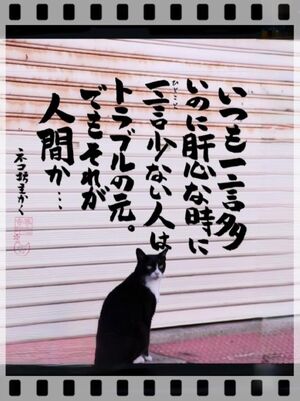 いつも一言多
いのに肝心な時に
ひとこと
一言少ない人は
トラブルの元。
でもそれが
人間か…